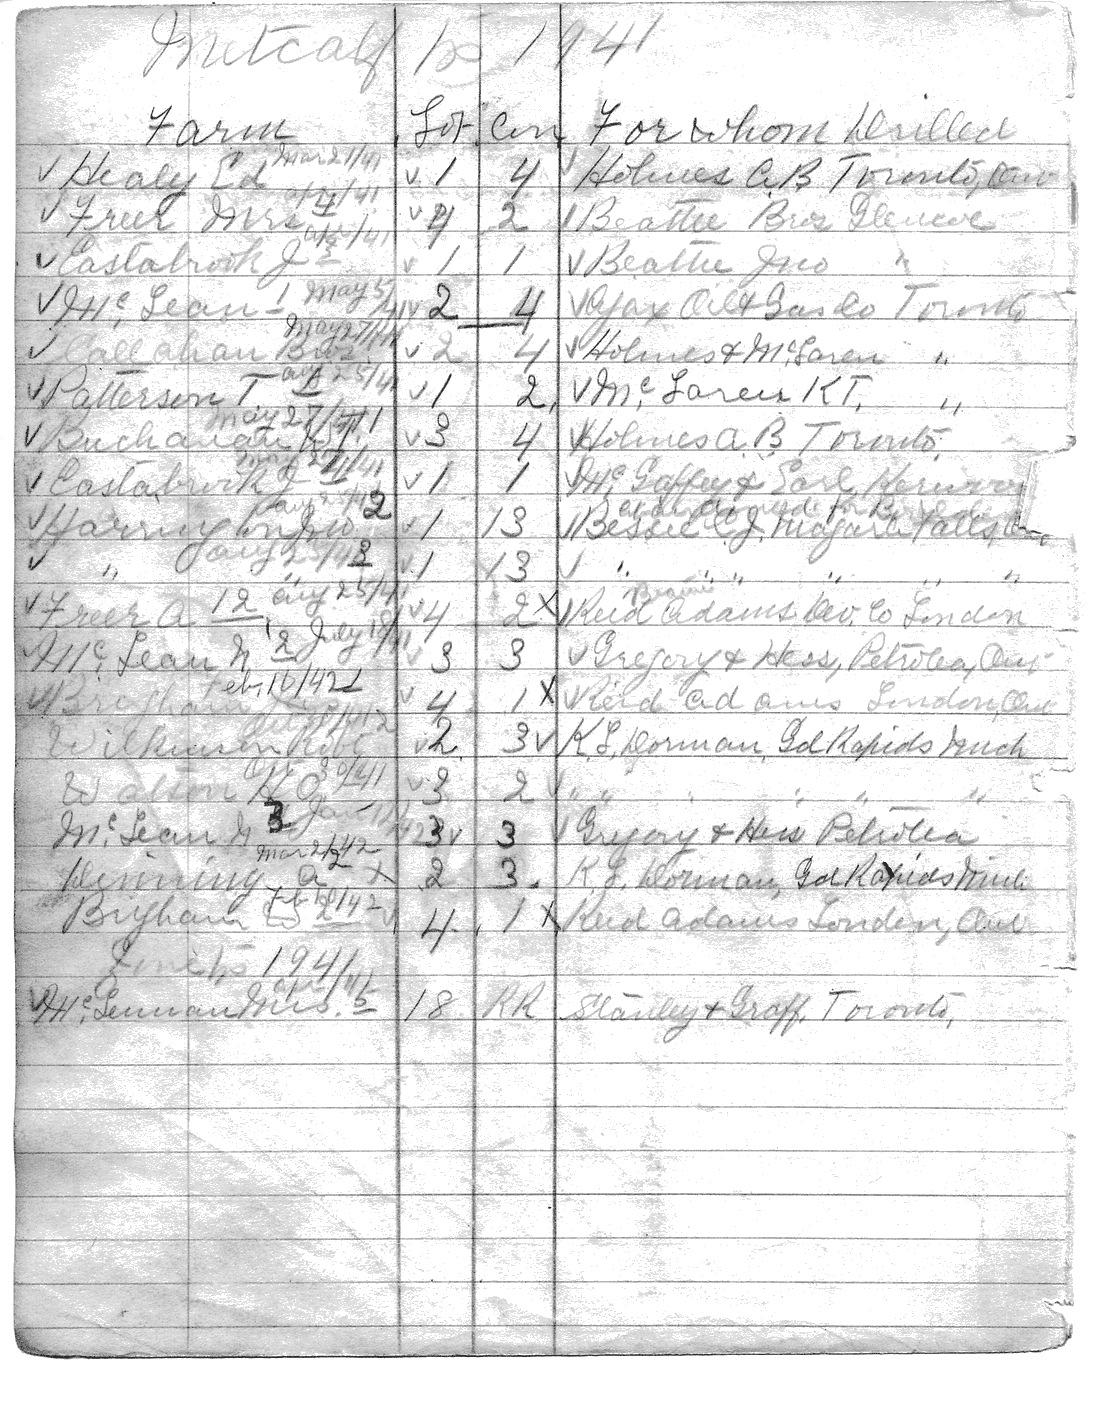 Metcalf tp 1941
Farm Lot Con For whom Drilled
✓ Healy Ed Mar 21/41 ✓ 1 4 ✓ Holmes A.B Toronto, Ont
✓ Freer Mrs 4 /41 ✓ 4 2 Beattie Bros Glencoe
✓ Eastabrook J 3 /41 ✓ 1 1 ✓ Beattie Jno "
✓ Mc Lean - 1 May 5/41 ✓ 2 4 ✓ Ajax Oil & Gas Co Toronto
✓ Callahan Bros. May 27/41 ✓ 2 4 ✓ Holmes & McLaren "
✓ Patterson T. A 25/41 ✓ 1 2, ✓ Mc Laren K T, "
✓ Buchanan May 27/41 ✓ 3 4 ✓ Holmes A. B, Toronto,
✓ Eastabrook J 4 /41 ✓ 1 1 Mc Gaffey & Earl,
✓ Harrington Jno 2 ✓ 1 13 Bessie C. J. Niagara Falls,
✓ " 3 ✓ 1 13 ✓ " " " " " "
✓ Freer A 12 Aug 25/41 ✓ 4 2 X Reid Adams Dev. Co London
Mc, Lean N, 2 July 19/41 ✓ 3 3 ✓ Gregory & Hess, Petrolea, Ont
✓ Brigham Feb, 16/42 1 ✓ 4 1 X ✓ Reid Adams London, Ont
Wilkinson Robt ✓ 2 3 ✓ K. J, Dorman, Gd Rapids Mich
Walton 30/41 ✓ 3 2 ✓ " " " " " "
Mc, Lean N 3 Jan 3 ✓ 3 ✓ Gregory & Hess Petrolea
Dinning A 2 Mar 2/42 X 2 3. K. J. Dorman, Gd Rapids Mich
Brigham 2 Feb /42 ✓ 4. 1 X Reid Adams London, Ont
tp 1941
✓ Mc, Lennan Mrs. 5 /41 18 RR Stanley & Graff, Toronto,